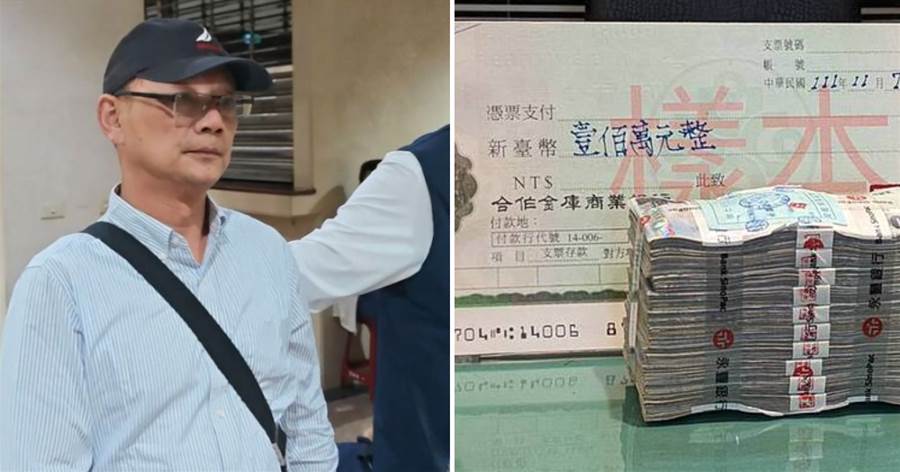 支票號碼
帳 號
中華民國 111年 11月 7
憑票支付
新臺幣 壹佰萬元整
樣本
NT$ 此致
合作金庫商業銀行
付款地:
付款行代號 14-006-
項 目 支票存款 對方
704 14006 8
永豐銀行
Bank SinoPac
永豐銀行
Bank SinoPac